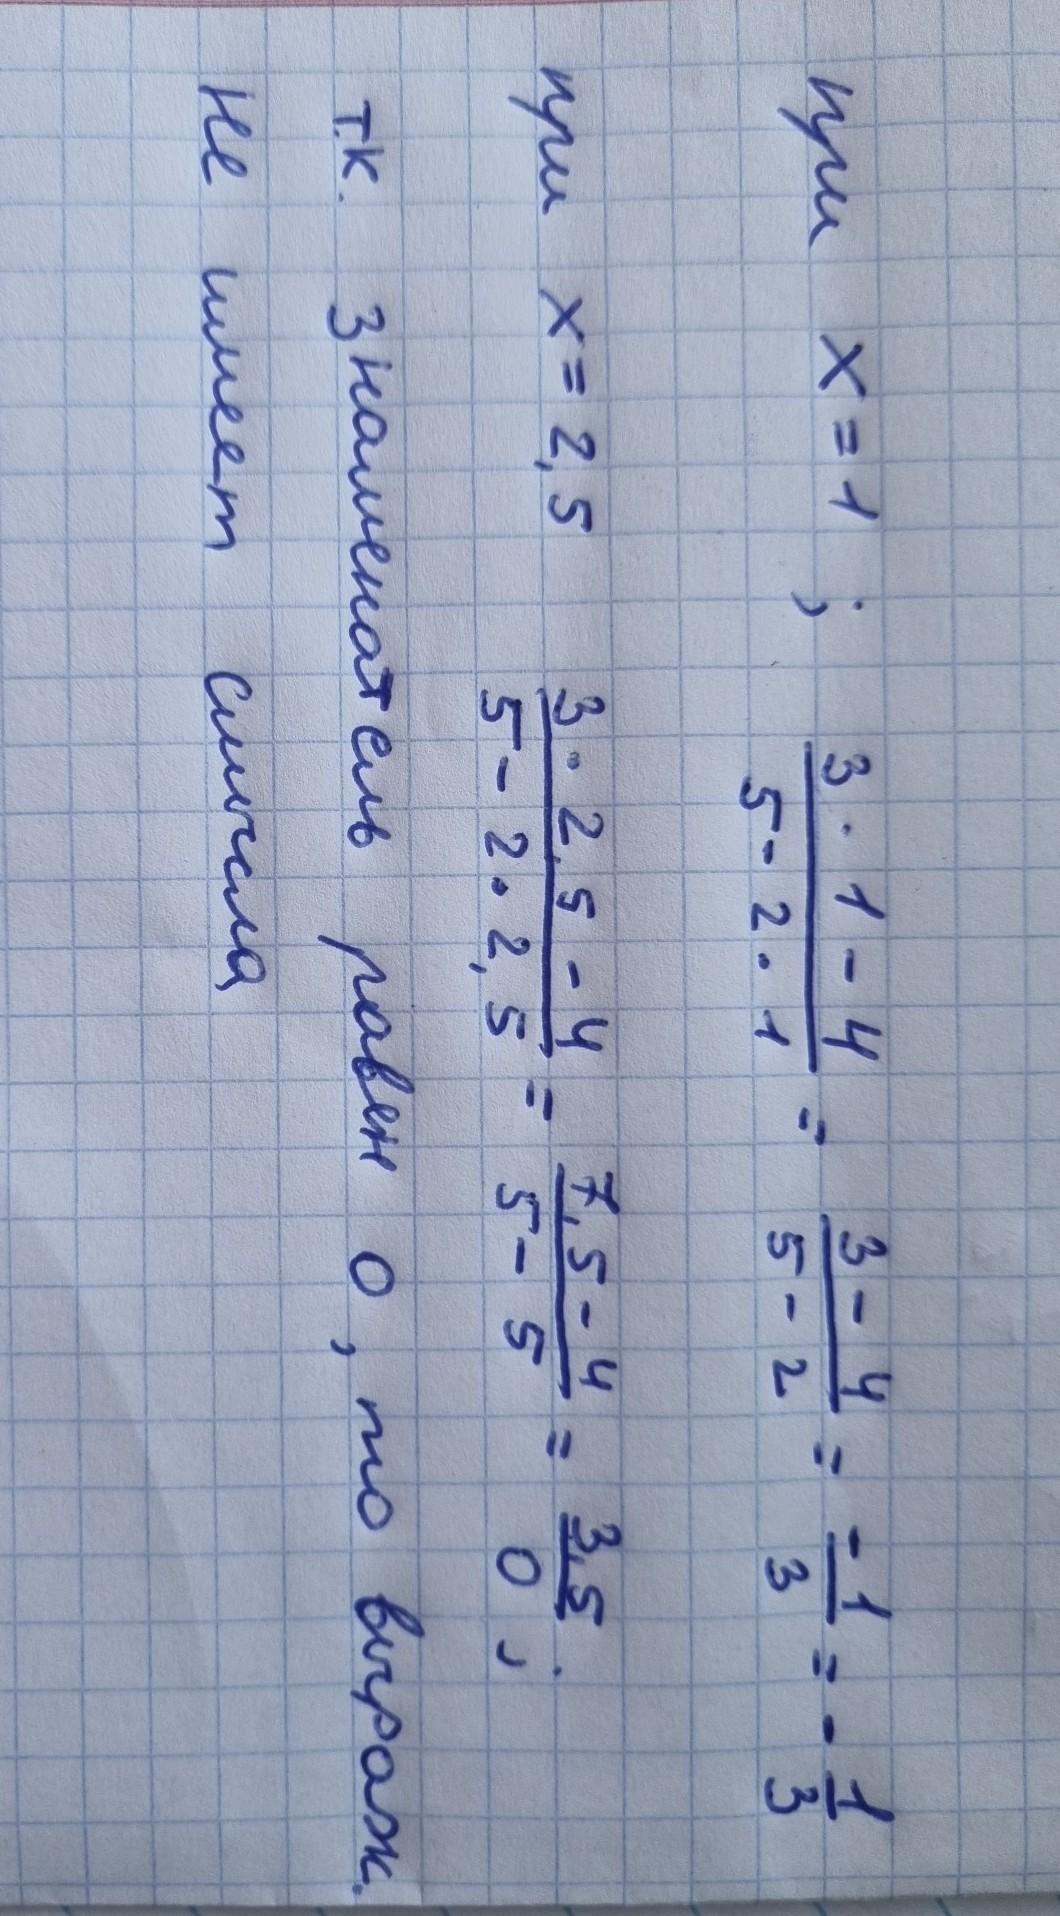 при x = 1 ; (3 · 1 - 4)/(5 - 2 · 1) = (3 - 4)/(5 - 2) = -1/3 = - 1/3
при x = 2,5 (3 · 2,5 - 4)/(5 - 2 · 2,5) = (7,5 - 4)/(5 - 5) = 3,5/0 ;
т.к. знаменатель равен 0, то выраж.
не имеет смысла